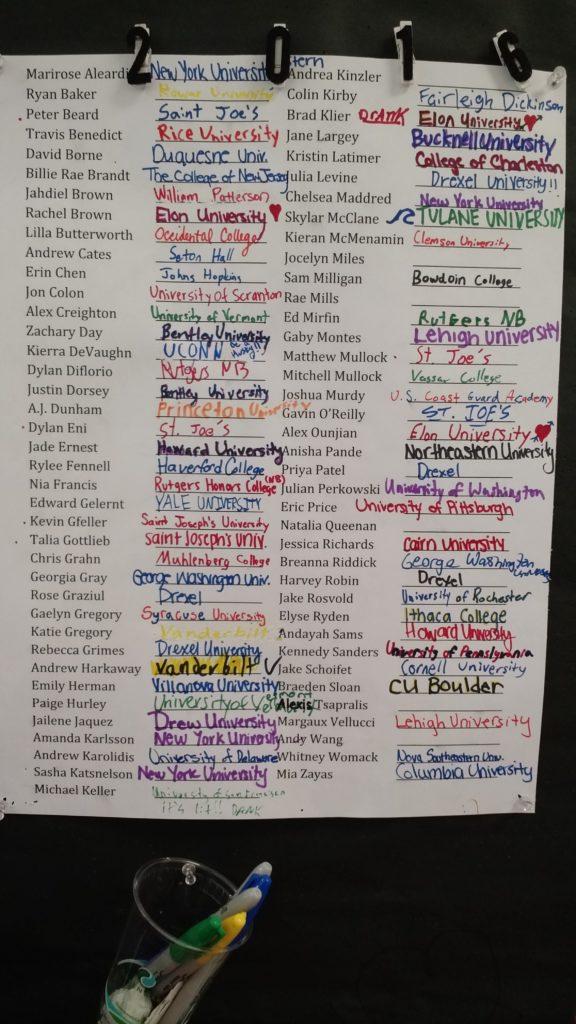 2 0 1 6
Marirose Aleardi New York University
Ryan Baker Rowan University
Peter Beard Saint Joe's
Travis Benedict Rice University
David Borne Duquesne Univ.
Billie Rae Brandt The College of New Jersey
Jahdiel Brown William Patterson
Rachel Brown Elon University
Lilla Butterworth Occidental College
Andrew Cates Seton Hall
Erin Chen Johns Hopkins
Jon Colon University of Scranton
Alex Creighton University of Vermont
Zachary Day Bentley University
Kierra DeVaughn UCONN
Dylan Diflorio Rutgers NB
Justin Dorsey Bentley University
A.J. Dunham Princeton University
Dylan Eni St. Joe's
Jade Ernest Howard University
Rylee Fennell Haverford College
Nia Francis Rutgers Honors College (NB)
Edward Gelernt YALE UNIVERSITY
Kevin Gfeller Saint Joseph's University
Talia Gottlieb Saint Joseph's Univ.
Chris Grahn Muhlenberg College
Georgia Gray George Washington Univ.
Rose Graziul Drexel
Gaelyn Gregory Syracuse University
Katie Gregory Vanderbilt
Rebecca Grimes Drexel University
Andrew Harkaway Vanderbilt
Emily Herman Villanova University
Paige Hurley University of Vermont
Jailene Jaquez Drew University
Amanda Karlsson New York University
Andrew Karolidis University of Delaware
Sasha Katsnelson New York University
Michael Keller University of
it's lit!!
Andrea Kinzler
Colin Kirby Fairleigh Dickinson
Brad Klier Elon University
Jane Largey Bucknell University
Kristin Latimer College of Charleston
Julia Levine Drexel University!!
Chelsea Maddred New York University
Skylar McClane TULANE UNIVERSITY
Kieran McMenamin Clemson University
Jocelyn Miles
Sam Milligan Bowdoin College
Rae Mills
Ed Mirfin Rutgers NB
Gaby Montes Lehigh University
Matthew Mullock St. Joe's
Mitchell Mullock Vassar College
Joshua Murdy U.S. Coast Guard Academy
Gavin O'Reilly ST. JOE'S
Alex Ounjian Elon University
Anisha Pande Northeastern University
Priya Patel Drexel
Julian Perkowski University of Washington
Eric Price University of Pittsburgh
Natalia Queenan
Jessica Richards Cairn University
Breanna Riddick George Washington University
Harvey Robin Drexel
Jake Rosvold University of Rochester
Elyse Ryden Ithaca College
Andayah Sams Howard University
Kennedy Sanders University of Pennsylvania
Jake Schoifet Cornell University
Braeden Sloan CU Boulder
Alexis Tsapralis
Margaux Vellucci Lehigh University
Andy Wang
Whitney Womack Nova Southeastern Univ.
Mia Zayas Columbia University